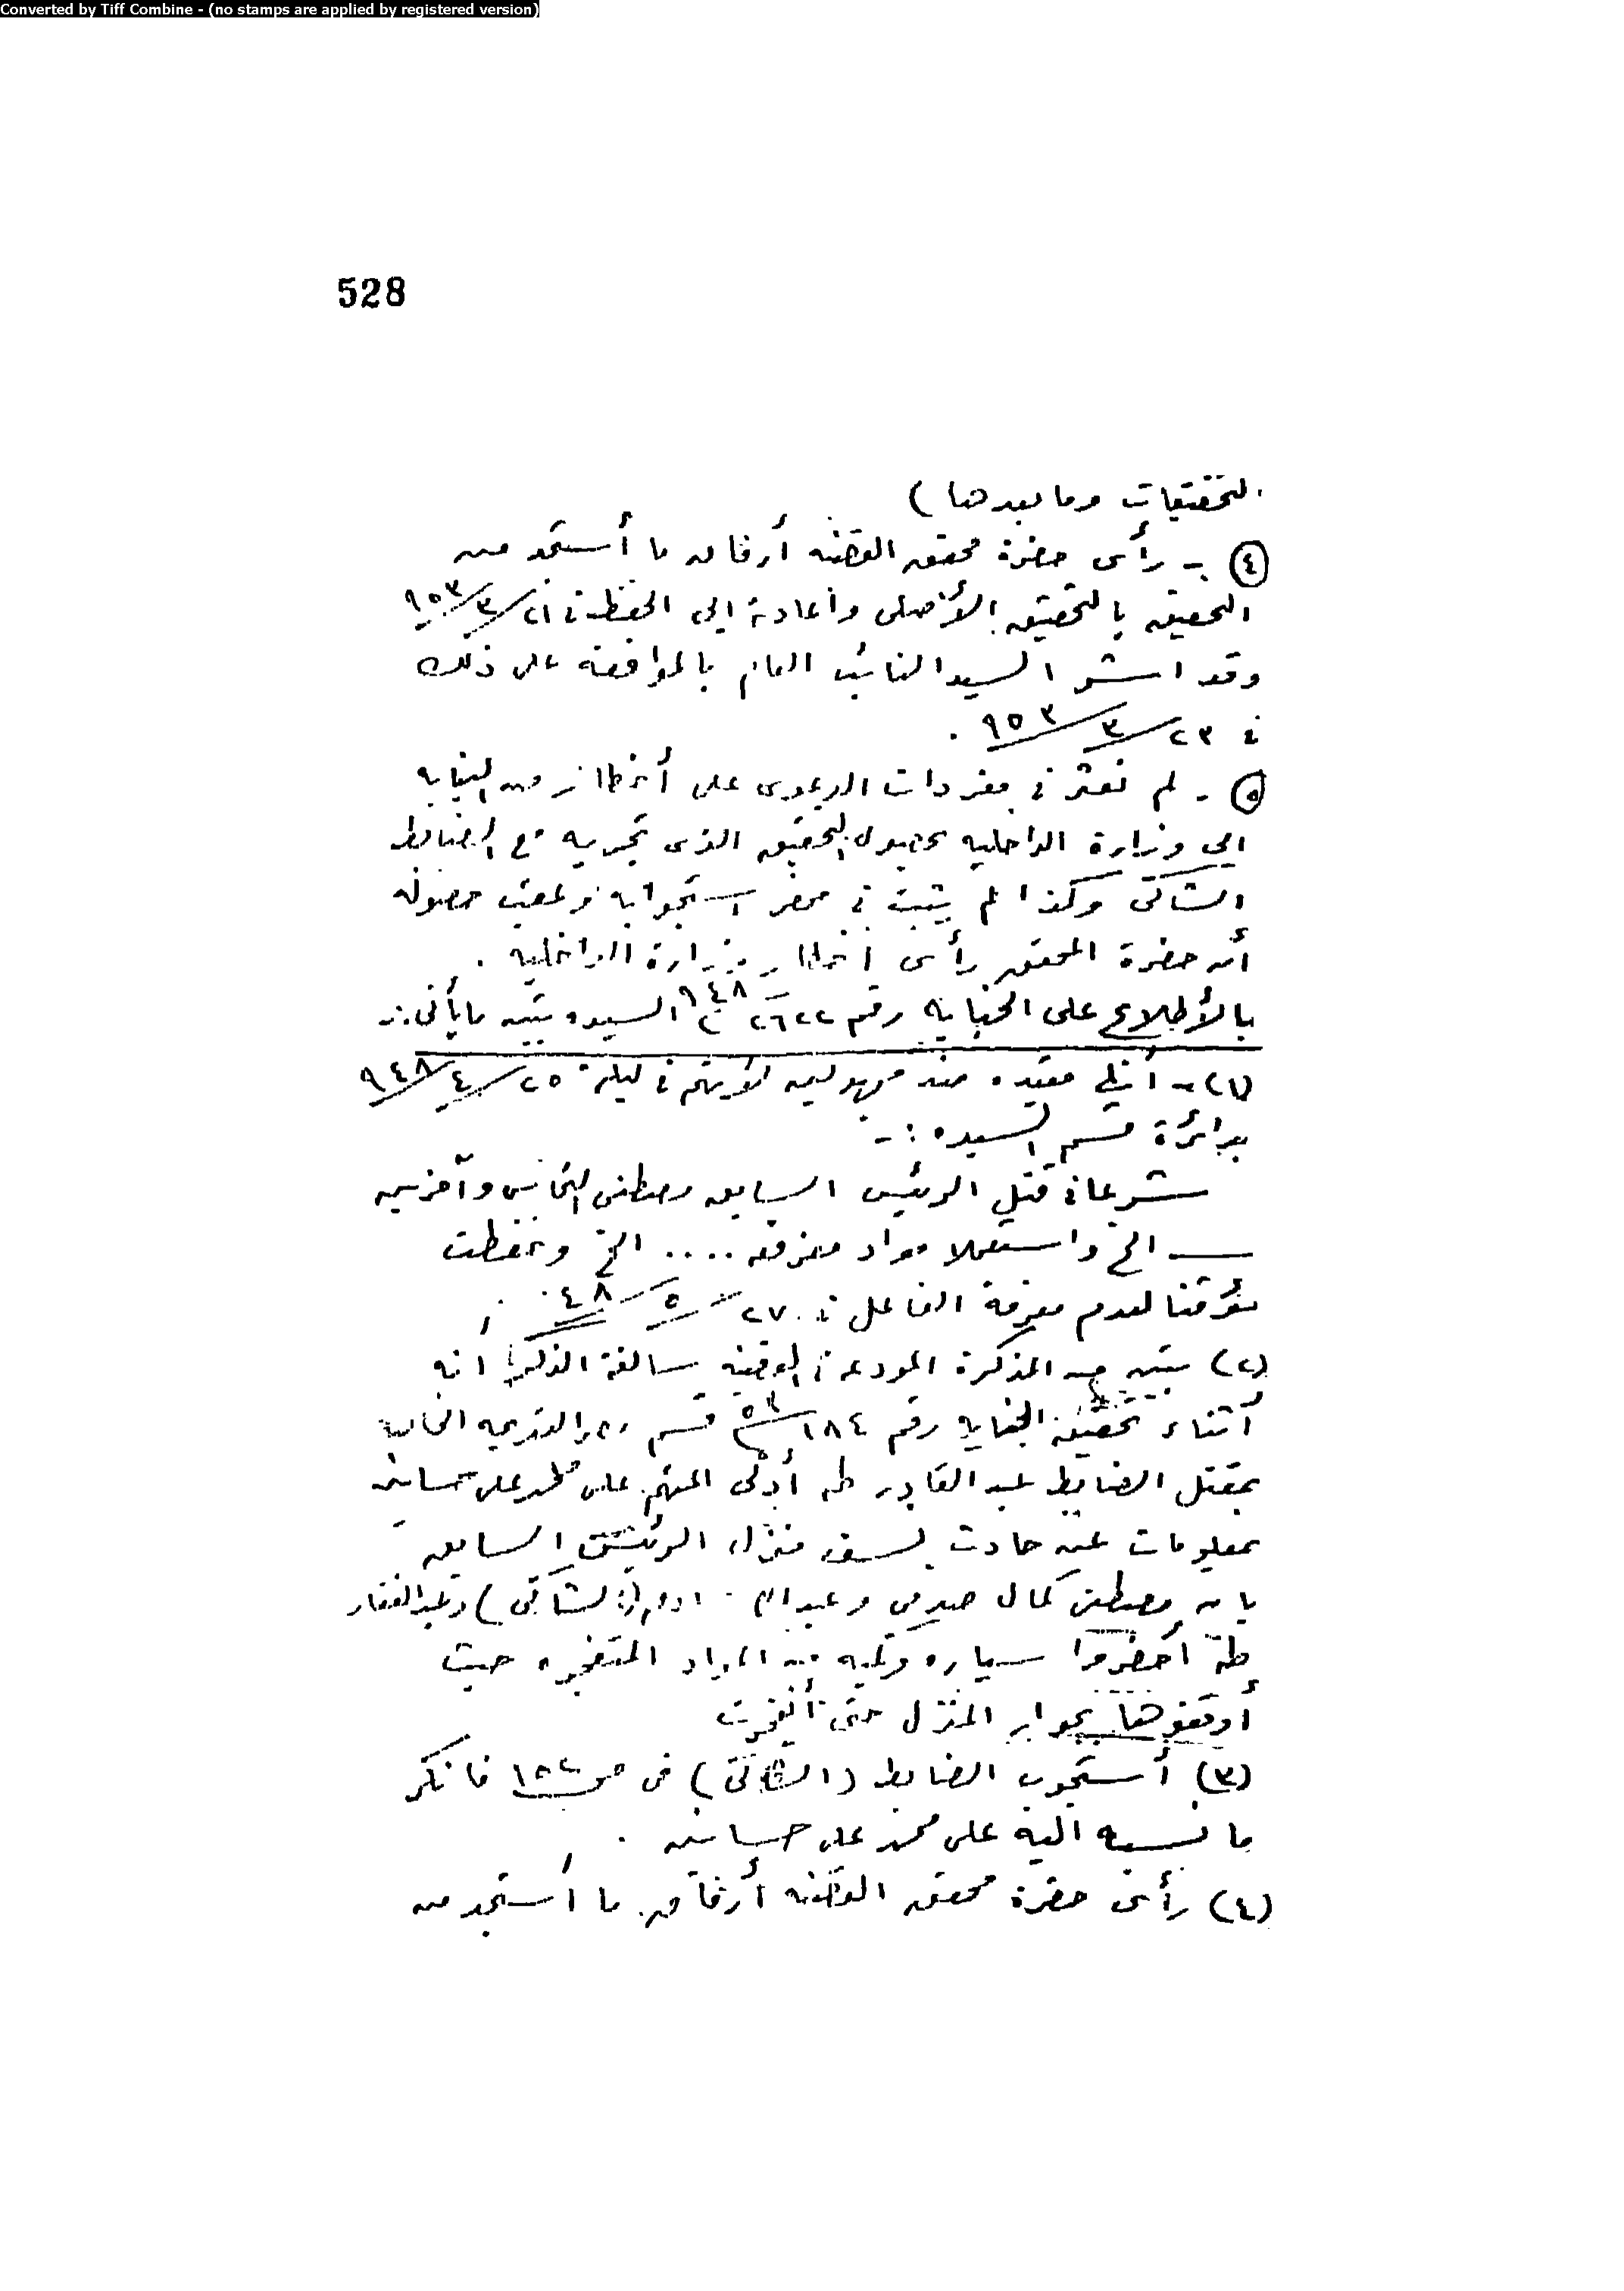 Converted by Tiff Combine - (no stamps are applied by registered version)
528
التحقيقات وما بعدها )
(٤) - رأى حضرة محقق القضيه أرفاق ما أستجد من
التحقيق بالتحقيق الأصلى وأعادته الى الحفظ فى ٢١/٣/٩٥٣
وقد اشر السيد النائب العام بالموافقه على ذلك
فى ٢٣/٣/٩٥٣ .
(٥) - لم نعثر فى مفردات الدعوى على أخطار من النيابه
الى وزارة الداخليه بحصول التحقيق الذى تجريه مع الضابط
الشاكى وكذا لم يثبت فى محضر استجوابه وعقب حصوله
أن حضرة المحقق رأى اخطار وزارة الداخليه .
بالأطلاع على الجنايه رقم ٢٦٢٢ ج ٩٤٨ السيده تبين ما يأتى :-
(١) - أنها مقيده ضد مجهولين لأنهم فى ليلة ٢٥/٤/٩٤٨
بدائرة قسم السيده :-
شرعا فى قتل الرئيس السابق مصطفى النحاس وآخرين
الخ واستعملا مواد مفرقعه .... الخ وحفظت
مؤقتا لعدم معرفة الفاعل فى ٢٧/٥/٤٨ .
(٢) تبين من المذكرة المودعة القضيه سالفة الذكر أنه
أثناء تحقيق الجنايه رقم ١٨٤ ج ٥٢ قسم الخاصة
بمقتل الضابط عبد القادر طه أدلى المتهم على محمد على حسانين
بمعلومات عن حادث نسف منزل الرئيس السابق
بأن مصطفى كمال صدقى وعبد (الشاكى) وعبد الغفار
طه أحضروا سياره وبها من المواد المتفجره حيث
أوقفوها بجوار المنزل حتى أنفجرت
(٣) أستجوب الضابط (الشاكى) فى ص ١٥٢ فأنكر
ما نسبه اليه على محمد على حسانين .
(٤) رأى حضرة محقق القضيه أرفاق ما أستجد من